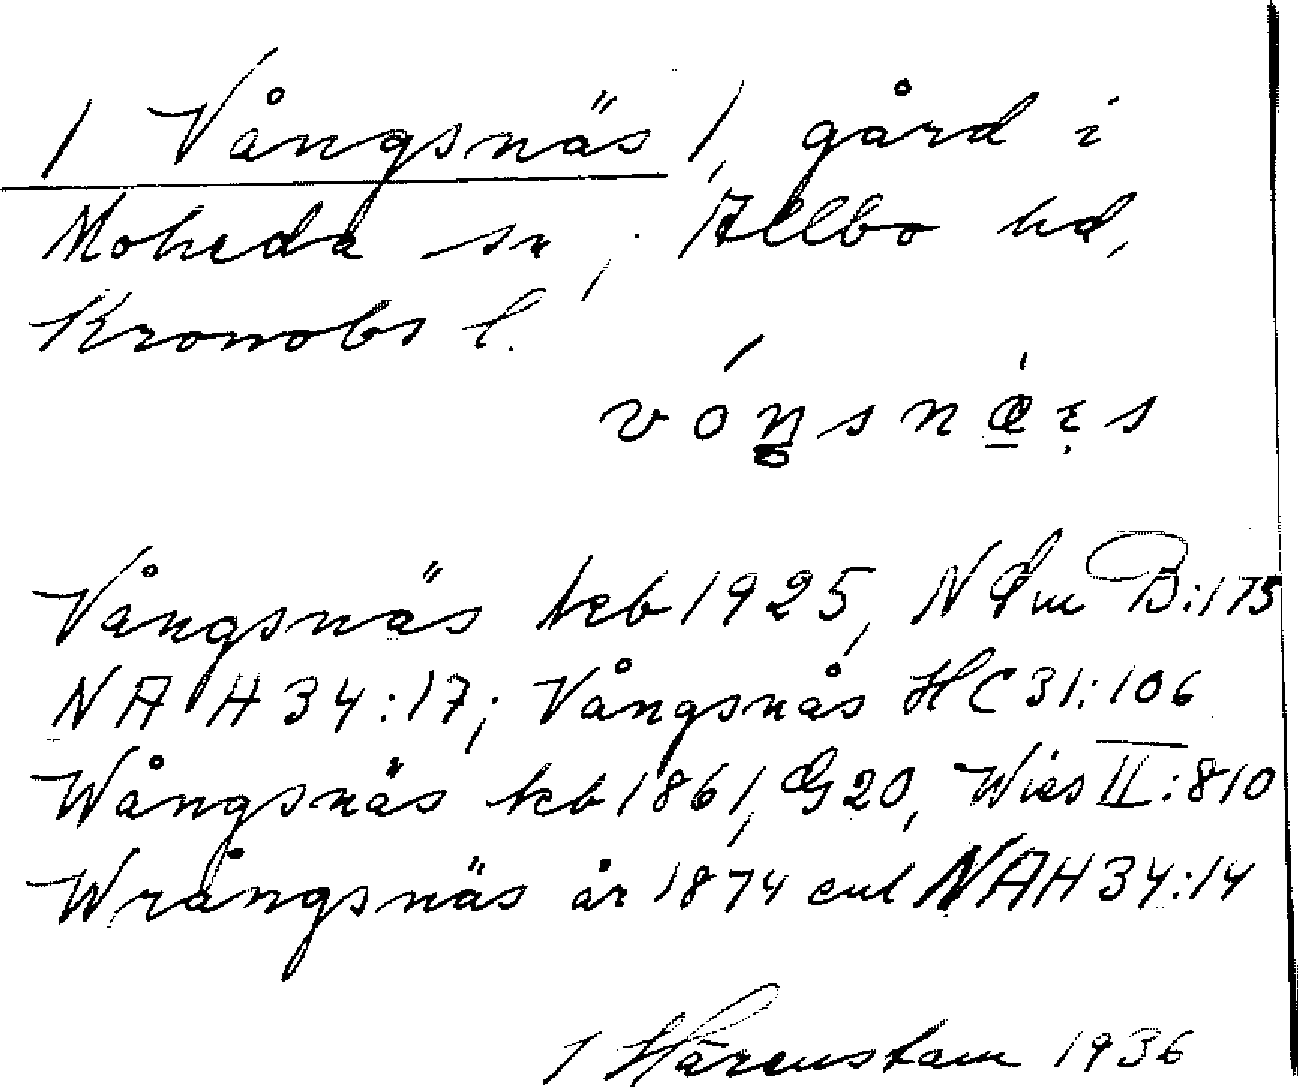 1 Vångsnäs 1, gård i
Moheda sn, Allbo hd,
Kronobs l.
vóŋsnæ̀ꞓs
Vångsnäs kb 1925, N dm B:175
NAH 34:17; Vångsnås HC 31:106
Wångsnäs kb 1861, G 20, Wies II:810
Wrångsnäs år 1874 enl NAH 34:14
I Härenstam 1936